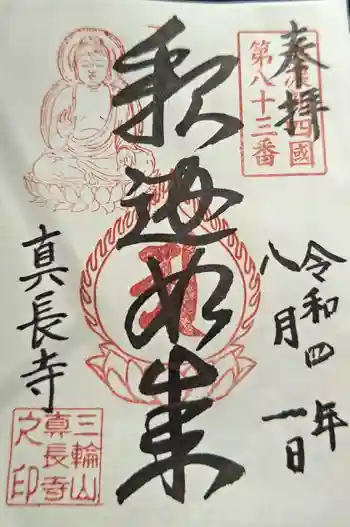 奉拝
四國
第八十三番
令和四年
八月一日
釈迦如来
真長寺
三輪山
真長寺
之印